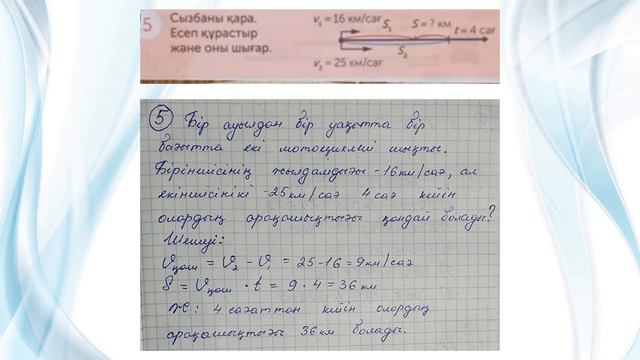 5
Сызбаны қара.
Есеп құрастыр
және оны шығар.
v₁ = 16 км/сағ
S₁
S = ? км
t = 4 сағ
S₂
v₂ = 25 км/сағ
5 Бір ауылдан бір уақытта бір
бағытта екі мотоциклші шықты.
Біріншісінің жылдамдығы - 16 км/сағ, ал
екіншісінікі - 25 км/сағ 4 сағ кейін
олардың арақашықтығы қандай болады?
Шешуі:
V қаш = V₂ - V₁ = 25 - 16 = 9 км/сағ
S = V қаш · t = 9 · 4 = 36 км
Ж: 4 сағаттан кейін олардың
арақашықтығы 36 км болады.